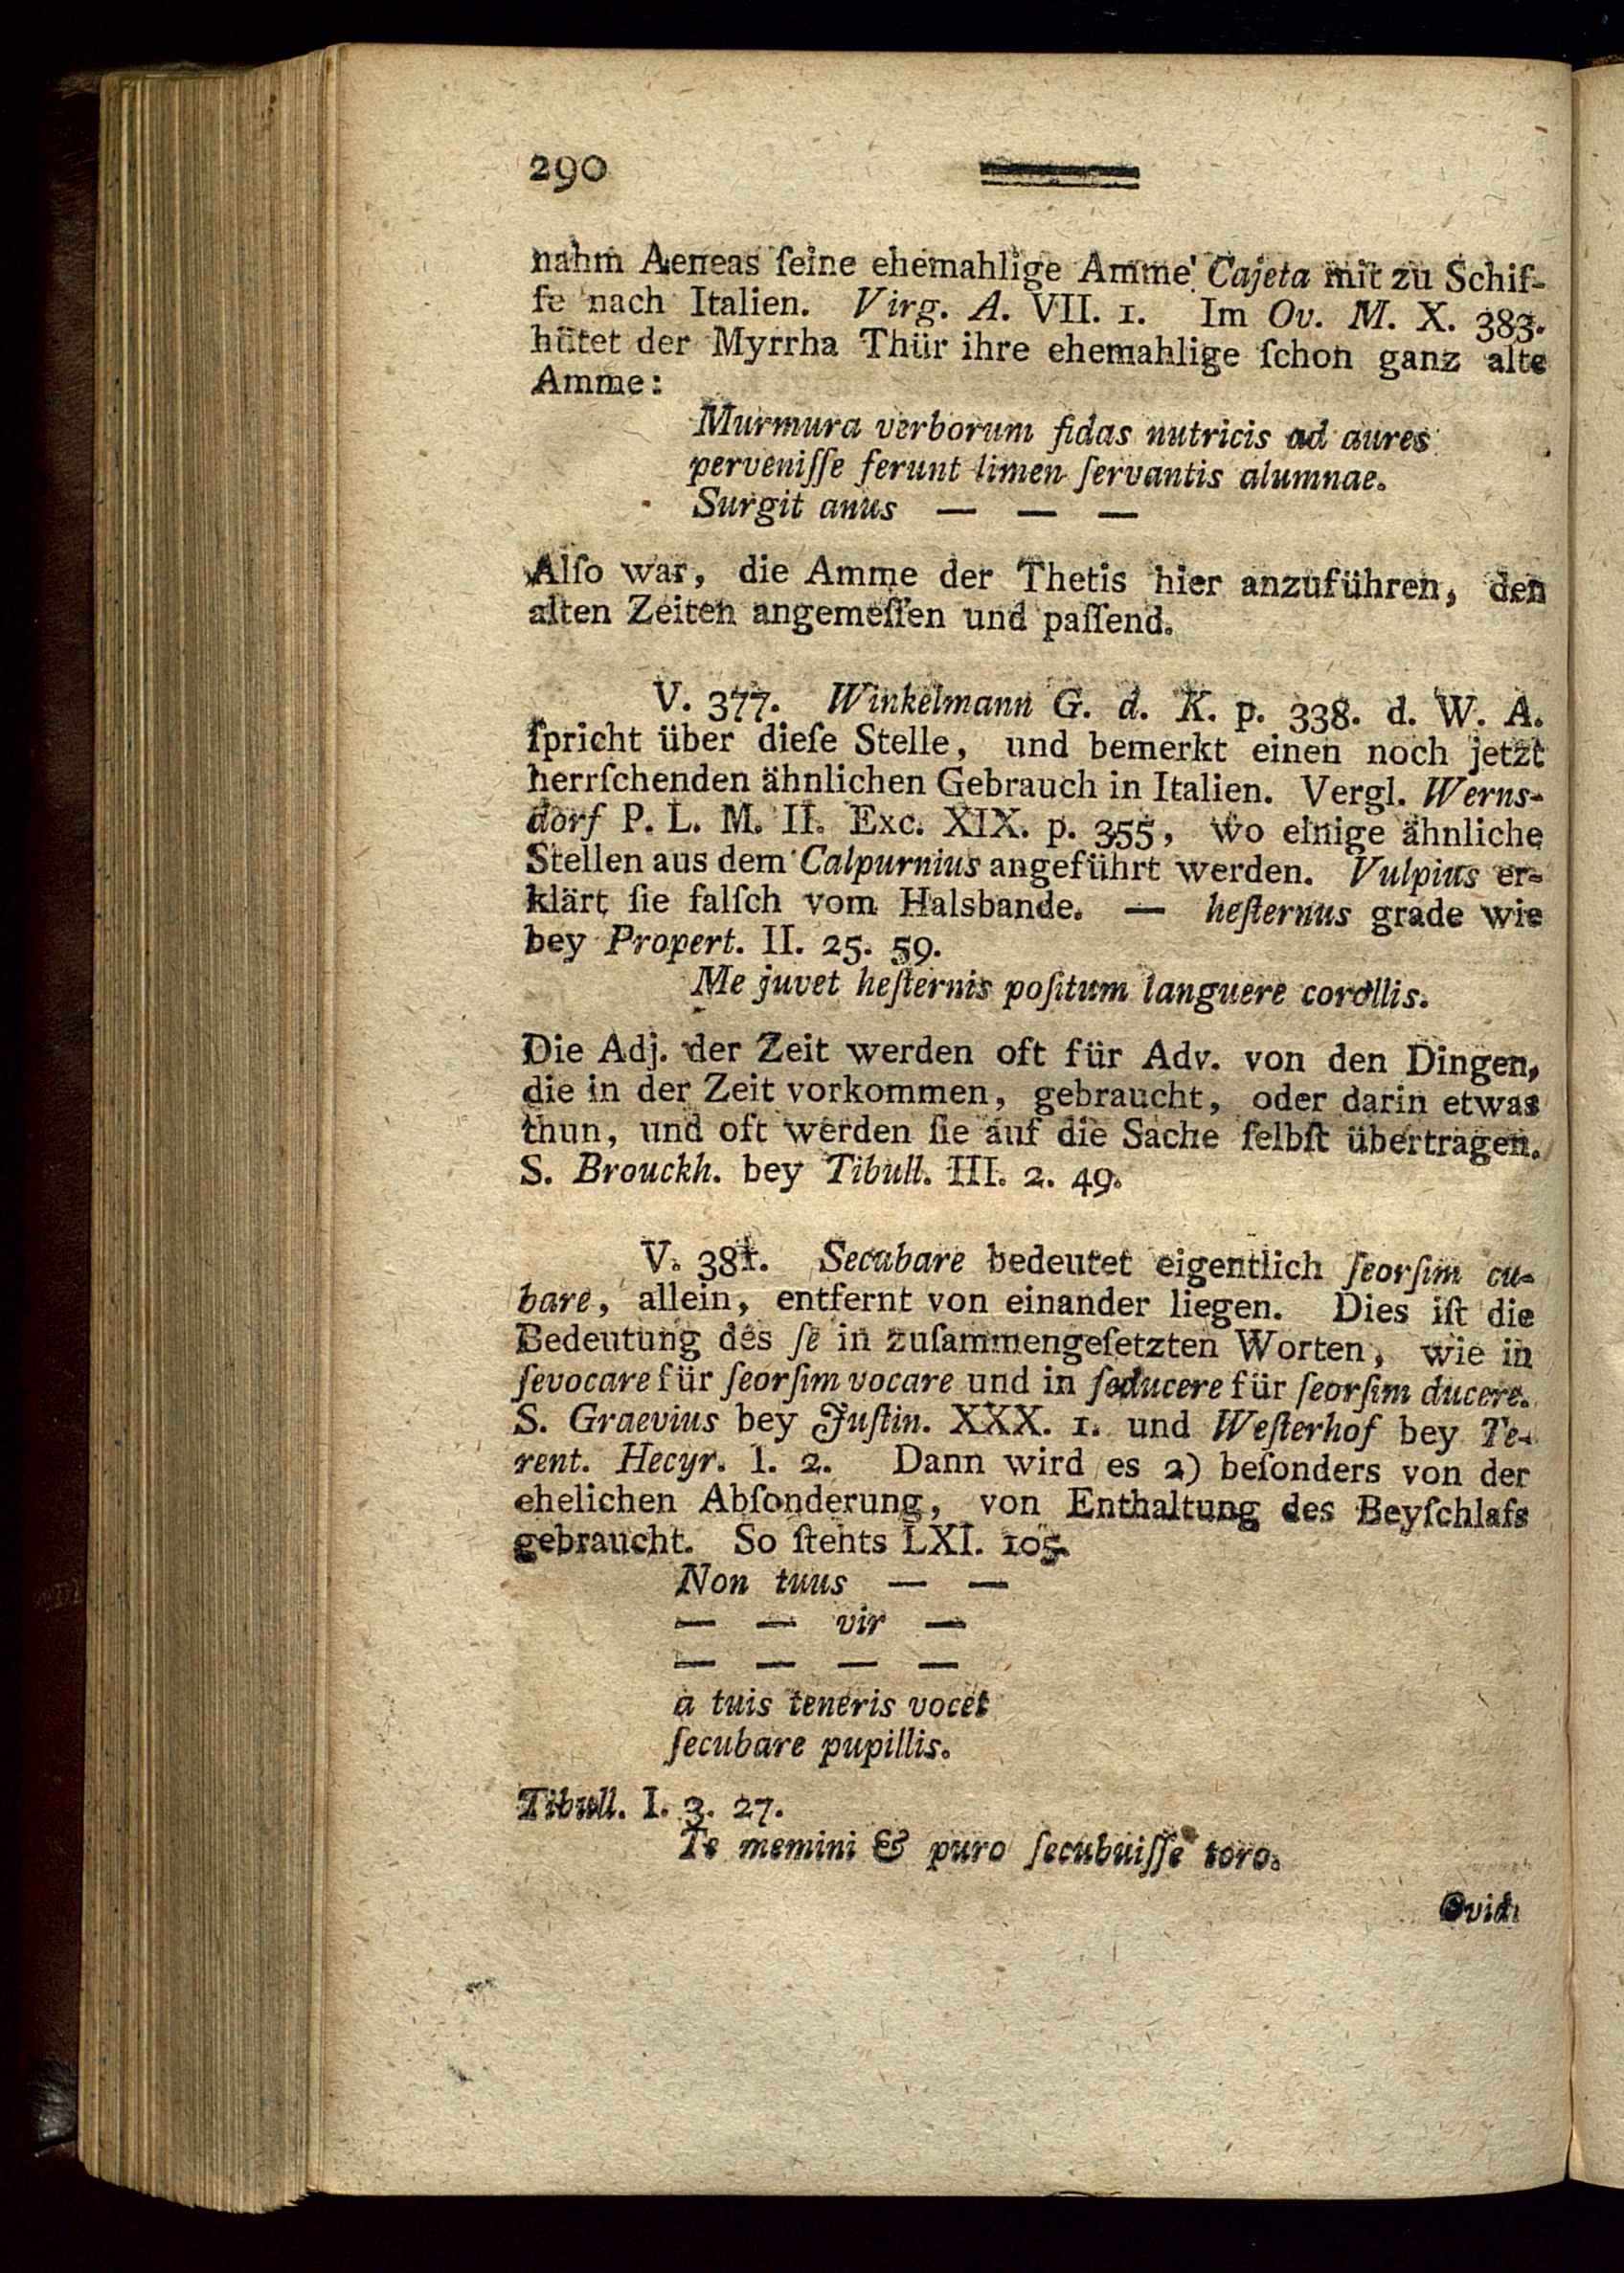 290
nahm Aeneas ſeine ehemahlige Amme Cajeta mit zu Schif-
fe nach Italien. Virg. A. VII. 1. Im Ov. M. X. 383.
hütet der Myrrha Thür ihre ehemahlige ſchon ganz alte
Amme:
Murmura verborum fidas nutricis ad aures
perveniſſe ferunt limen ſervantis alumnae.
Surgit anus — — —
Alſo war, die Amme der Thetis hier anzuführen, den
alten Zeiten angemeſſen und paſſend.
V. 377. Winkelmann G. d. K. p. 338. d. W. A.
ſpricht über dieſe Stelle, und bemerkt einen noch jetzt
herrſchenden ähnlichen Gebrauch in Italien. Vergl. Werns-
dorf P. L. M. II. Exc. XIX. p. 355, wo einige ähnliche
Stellen aus dem Calpurnius angeführt werden. Vulpius er-
klärt ſie falſch vom Halsbande. — heſternus grade wie
bey Propert. II. 25. 59.
Me juvet heſternis poſitum languere corollis.
Die Adj. der Zeit werden oft für Adv. von den Dingen,
die in der Zeit vorkommen, gebraucht, oder darin etwas
thun, und oft werden ſie auf die Sache ſelbſt übertragen.
S. Brouckh. bey Tibull. III. 2. 49.
V. 381. Secubare bedeutet eigentlich ſeorſim cu-
bare, allein, entfernt von einander liegen. Dies iſt die
Bedeutung des ſe in zuſammengeſetzten Worten, wie in
ſevocare für ſeorſim vocare und in ſeducere für ſeorſim ducere.
S. Graevius bey Juſtin. XXX. 1. und Weſterhof bey Te-
rent. Hecyr. I. 2. Dann wird es 2) beſonders von der
ehelichen Abſonderung, von Enthaltung des Beyſchlafs
gebraucht. So ſtehts LXI. 105.
Non tuus — —
— — vir —
— — — —
a tuis teneris vocet
ſecubare pupillis.
Tibull. I. 3. 27.
Te memini & puro ſecubuiſſe toro.
Ovid.